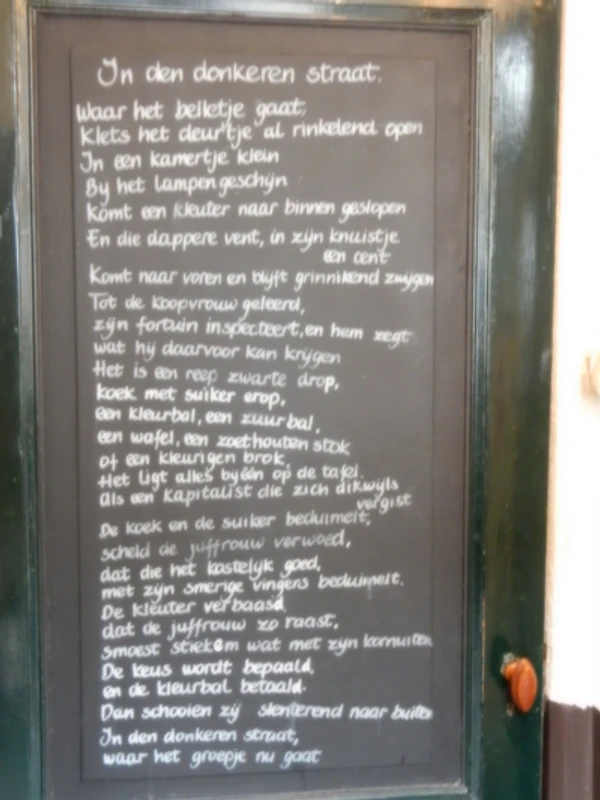 In den donkeren straat.
waar het belletje gaat,
Klets het deur'tje al rinkelend open
In een kamertje klein
By het lampengeschijn
Komt een kleuter naar binnen geslopen
En die dappere vent, in zijn knuistje
een cent
Komt naar voren en blijft grinnikend zwijgen
Tot de koopvrouw geleerd,
zijn fortuin inspecteert, en hem zegt
wat hij daarvoor kan krijgen
Het is een reep zwarte drop,
koek met suiker erop,
een kleurbal, een zuurbal,
een wafel, een zoethouten stok
of een kleurigen brok,
Het ligt alles byéén op de tafel.
als een kapitalist die zich dikwyls
vergist
De koek en de suiker beduimelt,
scheld de juffrouw verwoed,
dat die het kostelyk goed,
met zijn smerige vingers beduimelt.
De kleuter verbaasd
dat de juffrouw zo raast,
smoest stiekem wat met zijn kornuiten
De keus wordt bepaald,
en de kleurbal betaald.
Dan schooien zij slenterend naar buiten
In den donkeren straat,
waar het groepje nu gaat